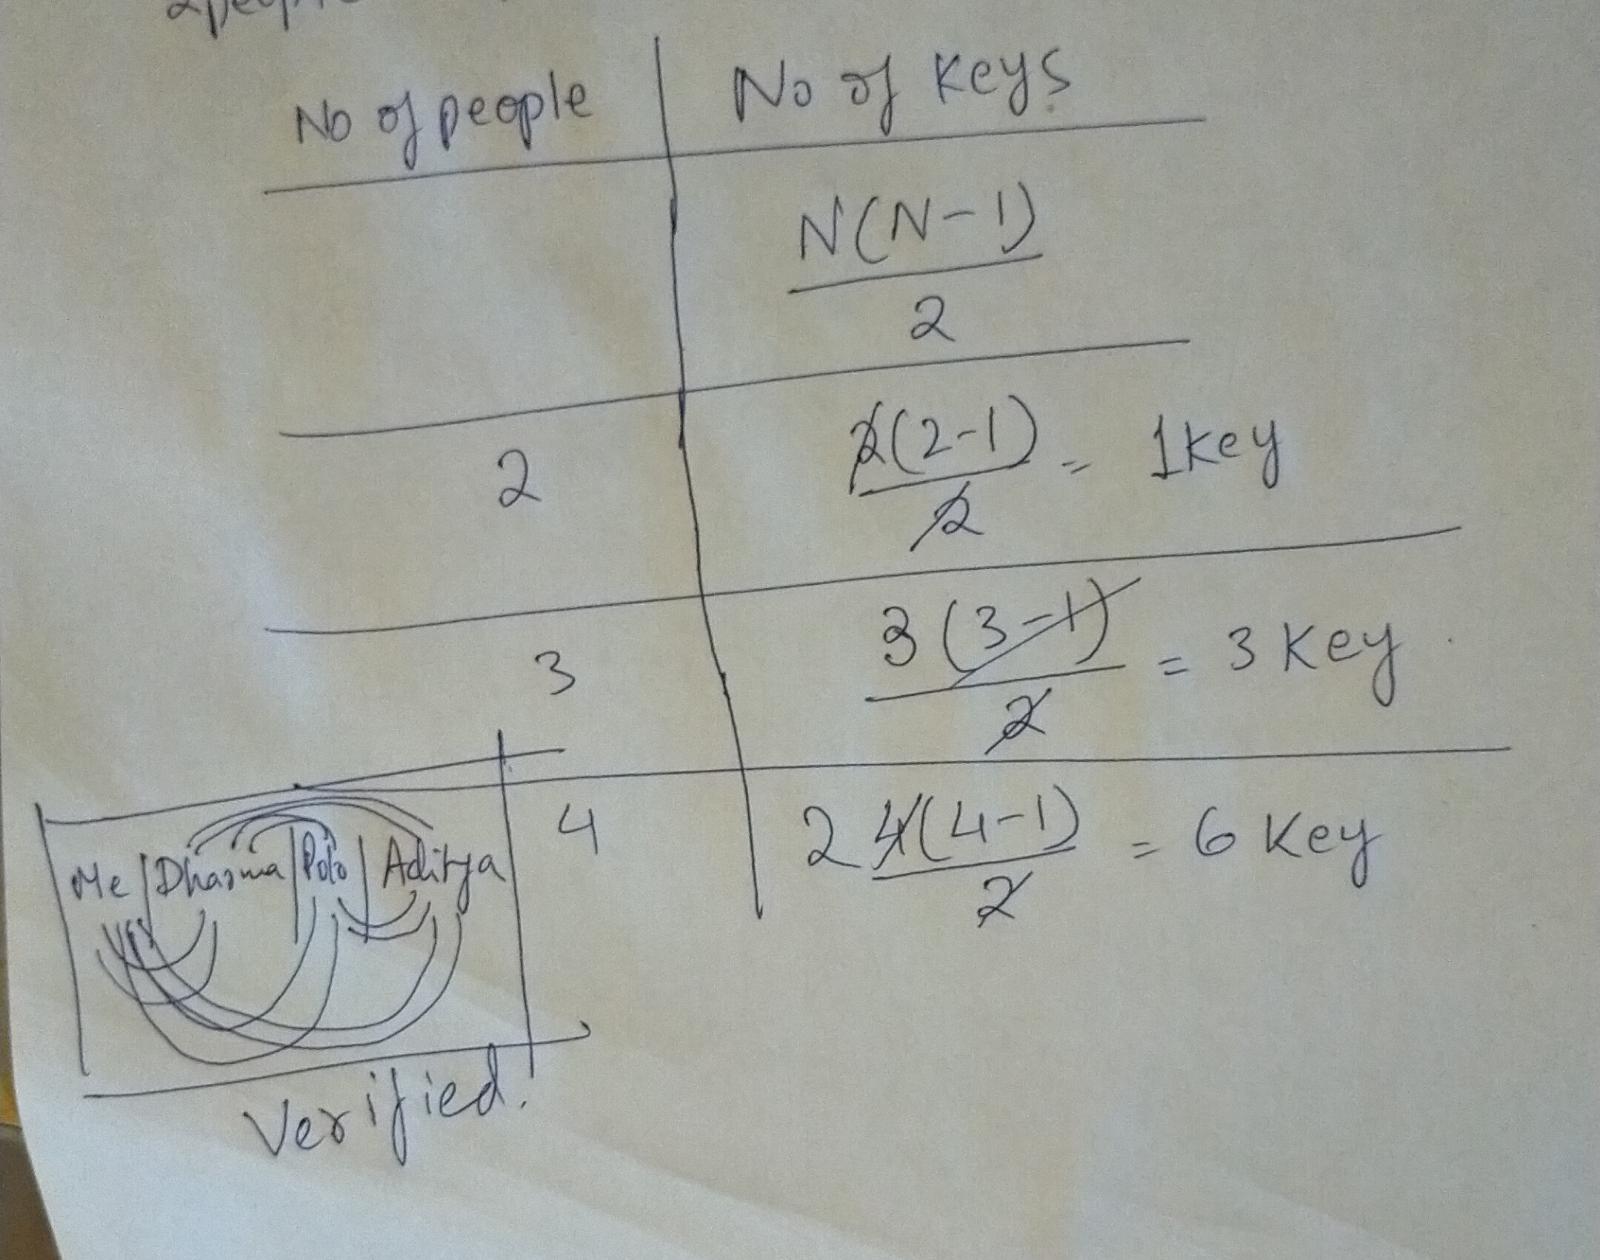 2people
No of people | No of Keys
N(N-1)
2
2 | 2(2-1) = 1key
2
3 | 3(3-1) = 3 Key
2
4 | 2 4(4-1) = 6 Key
2
Me | Dharma | Polo | Aditya
Verified.